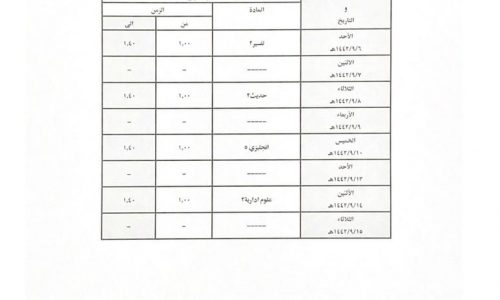 و
التاريخ
المادة
الزمن
من
الى
الأحد
١٤٤٢/٩/٦هـ
تفسير٢
١,٠٠
١,٤٠
الاثنين
١٤٤٢/٩/٧هـ
-----
–
–
الثلاثاء
١٤٤٢/٩/٨هـ
حديث٢
١,٠٠
١,٤٠
الأربعاء
١٤٤٢/٩/٩هـ
-----
–
–
الخميس
١٤٤٢/٩/١٠هـ
انجليزي ٥
١,٠٠
١,٤٠
الأحد
١٤٤٢/٩/١٣هـ
-----
–
–
الأثنين
١٤٤٢/٩/١٤هـ
علوم ادارية٢
١,٠٠
١,٤٠
الثلاثاء
١٤٤٢/٩/١٥هـ
-----
–
–